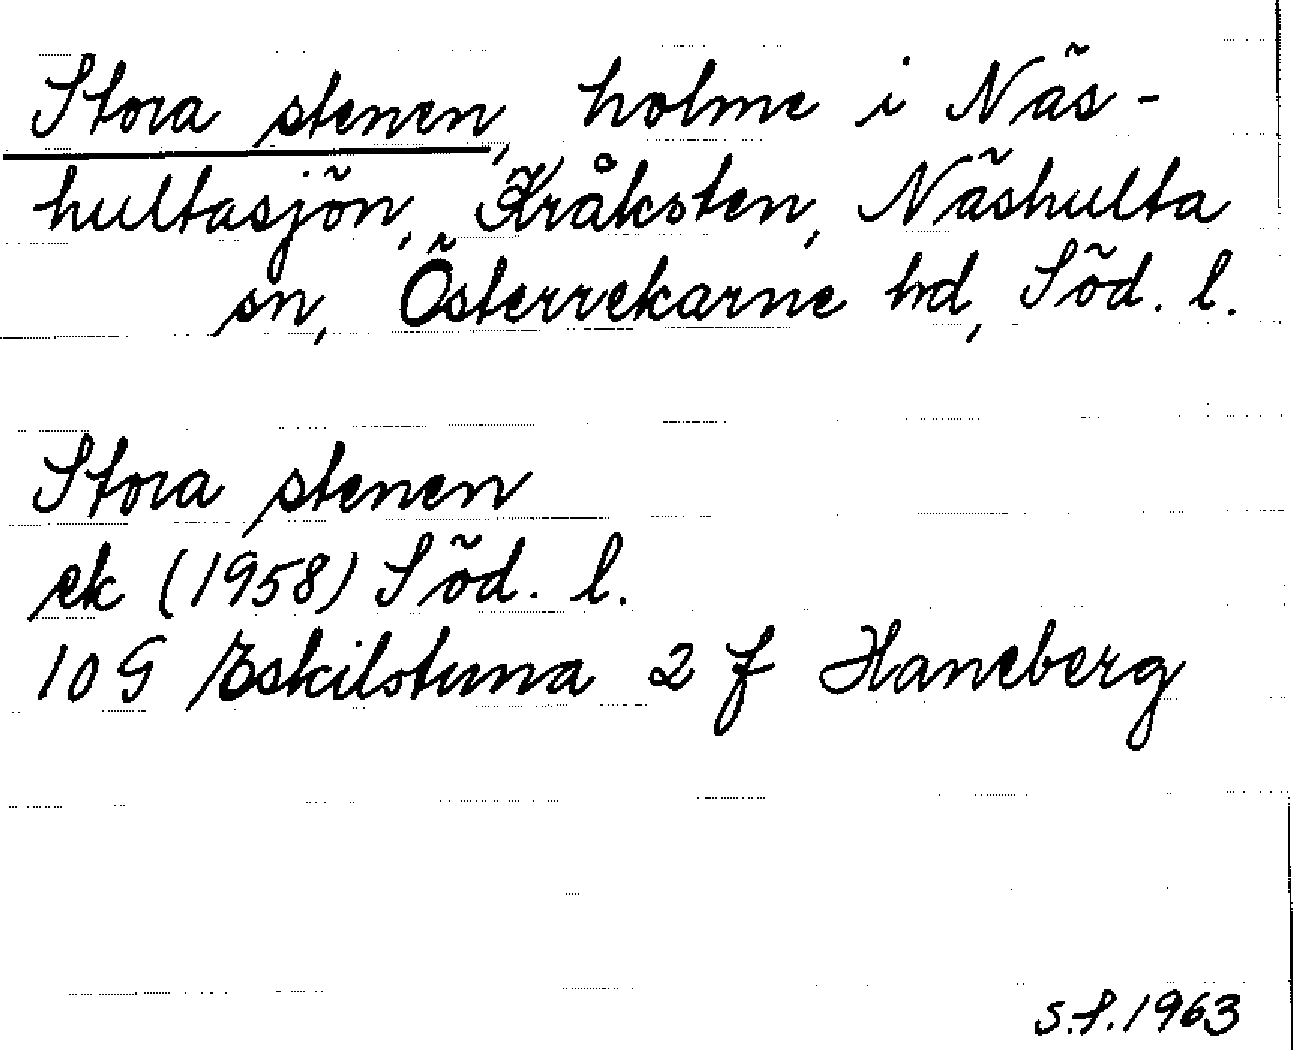 Stora stenen, holme i Näs-
hultasjön, Kråksten, Näshulta
sn, Österrekarne hd, Söd. l.
Stora stenen
ek (1958) Söd. l.
10G Eskilstuna 2 f Haneberg
S.F. 1963